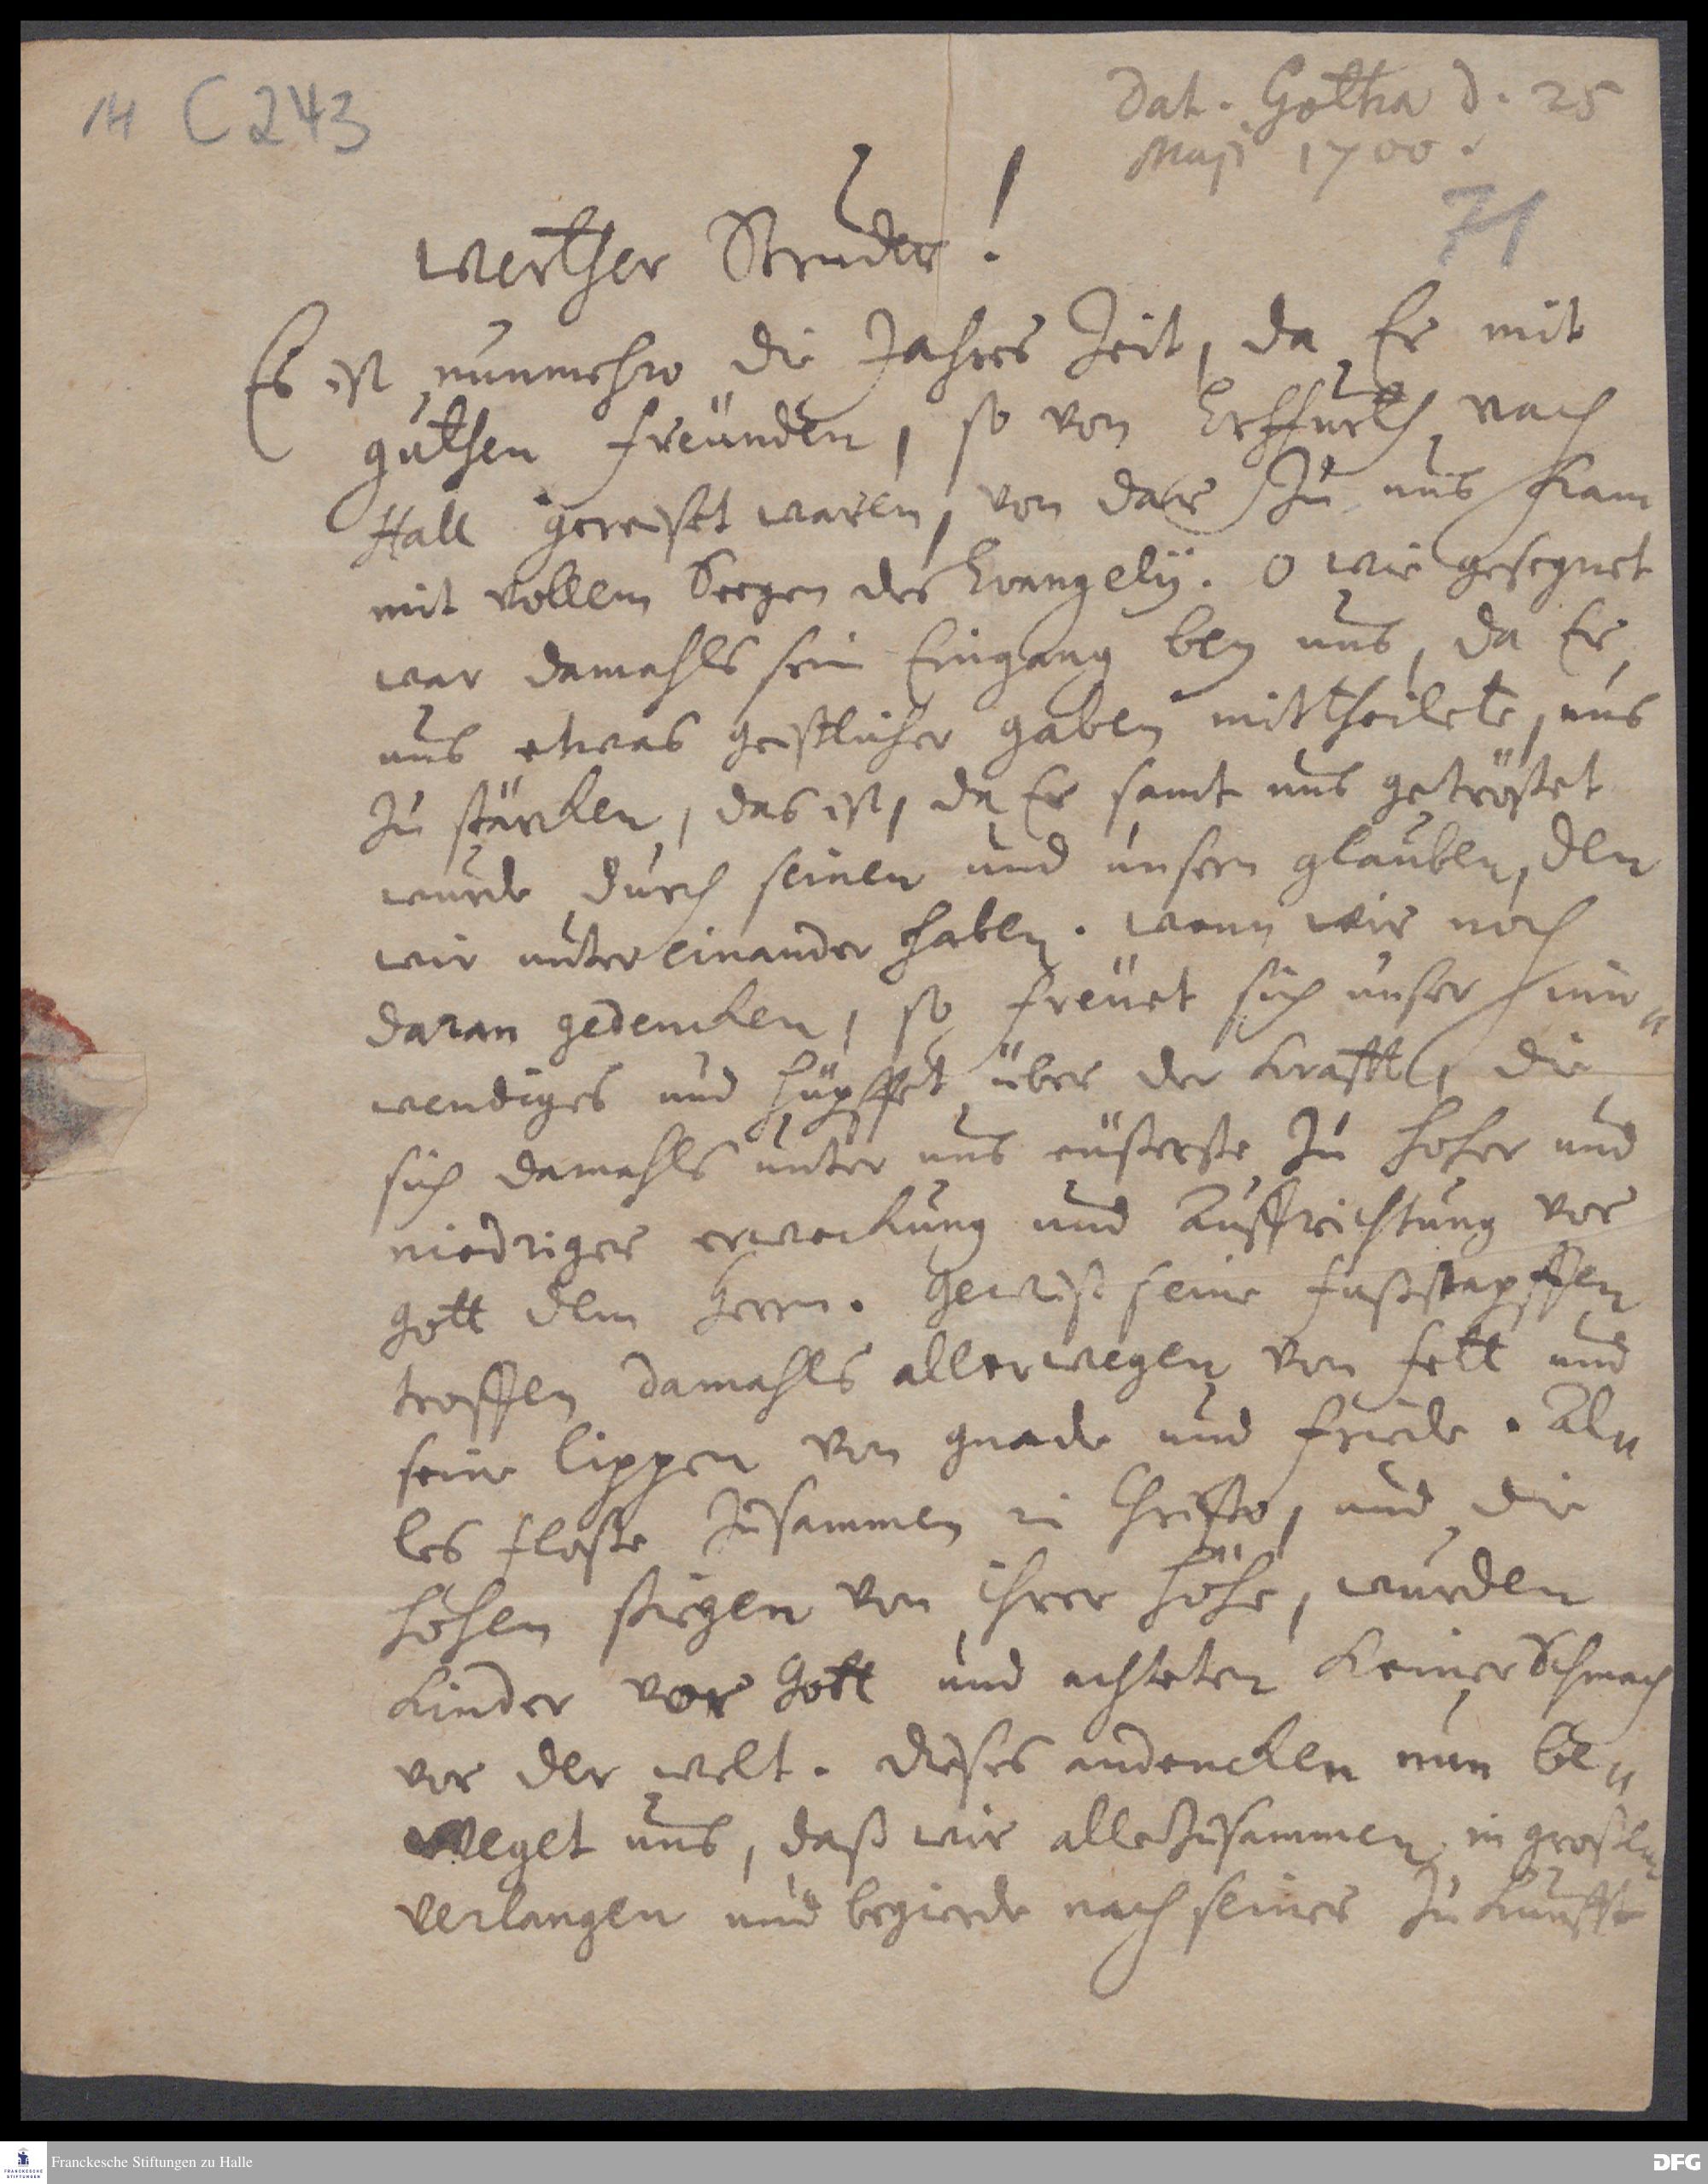 14 C 243
Dat. Gotha d. 25
Maji 1700.
71
Werther Bruder!
Es ist nunmehro die Jahres Zeit, da Er mit
guthen freünden, so von Erffurth nach
Hall gereiset waren, von dar zu uns kam
mit vollem Seegen des Evangelij. O wie gesegnet
war damahls sein Eingang bey uns, da Er
uns etwas geistlicher gaben mittheilete, uns
zu stärcken, das ist, da Er samt uns getröstet
wurde durch seinen und unsern glauben, den
wir unter einander haben. wenn wir noch
daran gedencken, so freuet sich unser inn„
wendiges und hüpffet über der Krafft, die
sich damahls unter uns eüßerte zu hoher und
niedriger erweckung und Auffrichtung vor
Gott dem Herrn. Gewiß seine fußstapffen
troffen damahls allerwegen von fett und
seine lippen von gnade und friede. Al„
les floße zusammen in Christo, und die
hohen stiegen von ihrer höhe, wurden
Kinder vor Gott und achteten keiner Schmach
vor der welt. dieses andencken nun be„
weget uns, daß wir alle zusammen in großen
verlangen und begierde nach seiner Zukunfft
Franckesche Stiftungen zu Halle
FRANCKESCHE
STIFTUNGEN
DFG